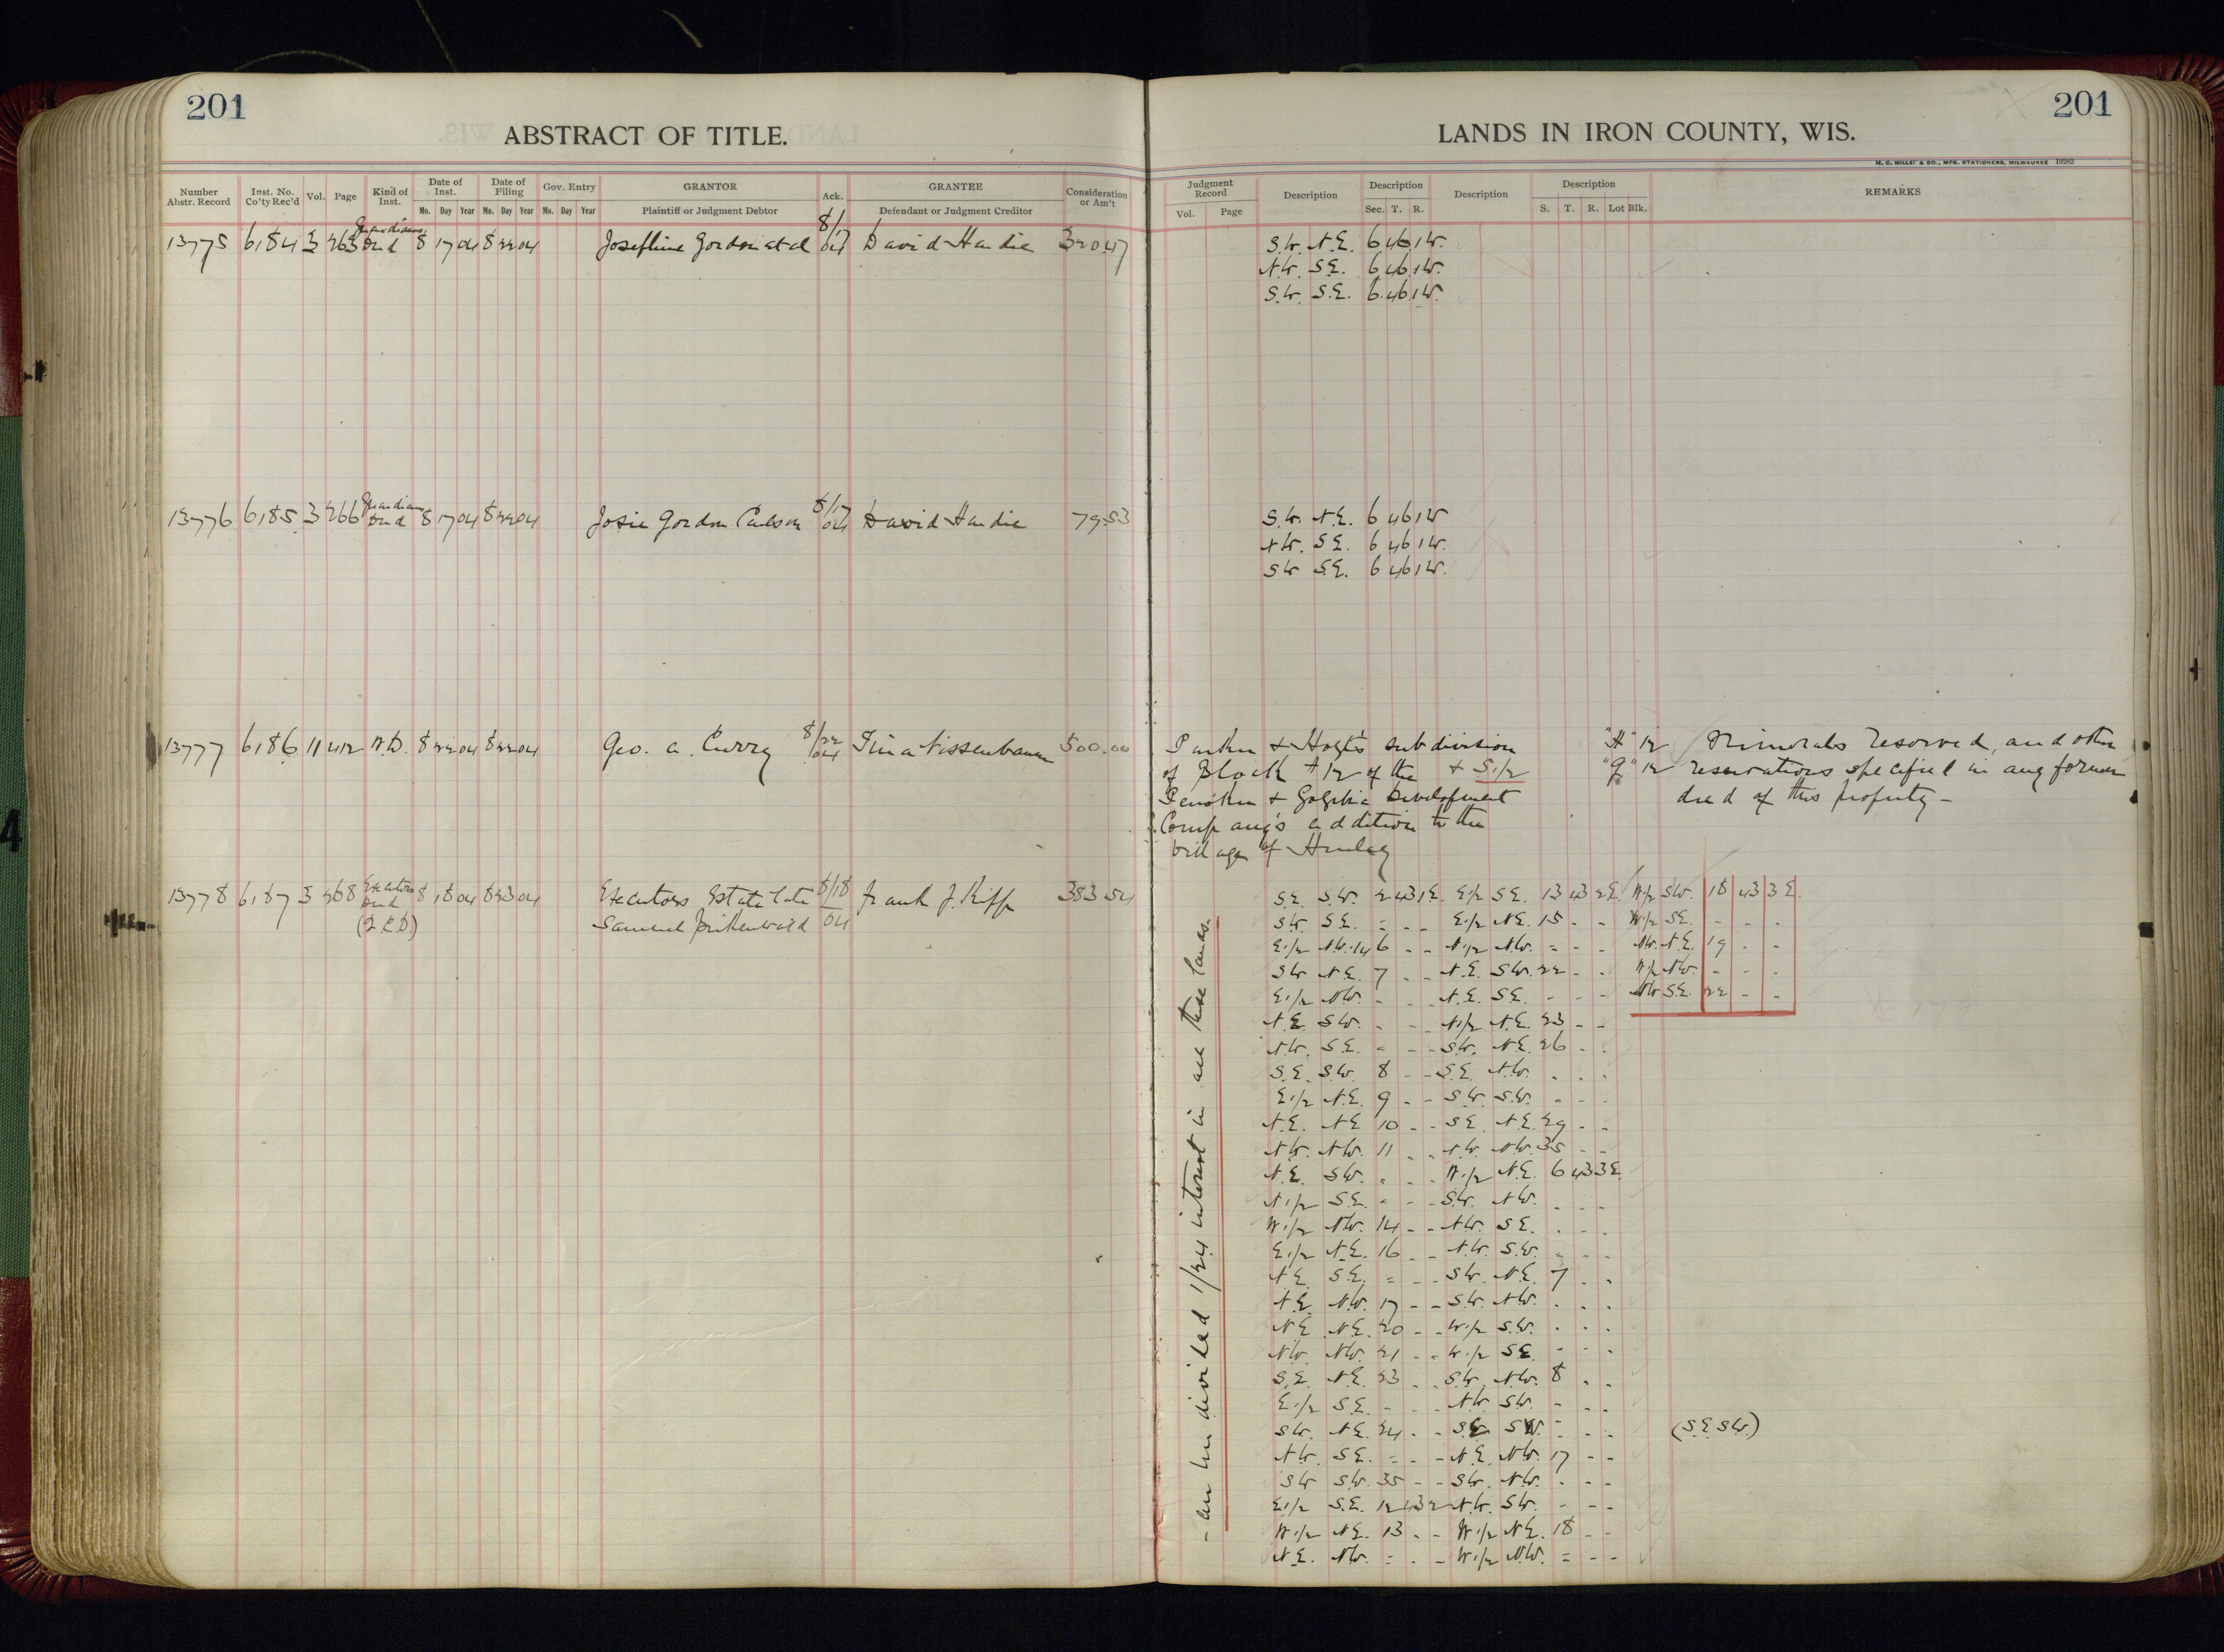 201
ABSTRACT OF TITLE.
Number Abstr. Record Inst. No. Co'ty Rec'd Vol. Page Kind of Inst. Date of Inst. Date of Filing Gov. Entry GRANTOR Ack. GRANTEE Consideration or Am't
Mo. Day Year Mo. Day Year Mo. Day Year Plaintiff or Judgment Debtor Defendant or Judgment Creditor
13775 6184 3 263 Guardians Deed 8 17 04 8 22 04 Josephine Gordon et al 8/17 04 David Hardie 320.47
13776 6185 3 266 Guardians Deed 8 17 04 8 22 04 Josie Gordon Carlson 8/17 04 David Hardie 79.53
13777 6186 11 412 W.D. 8 22 04 8 22 04 Geo. A. Curry 8/22 04 Tina Nissenbaum 500.00
13778 6187 3 268 Executors Deed 8 18 04 8 23 04 Executors Estate late 8/18 Frank J. Kipp 383.54
(Q.C.D.) Samuel 04
201
LANDS IN IRON COUNTY, WIS.
H. C. MILLER & CO., MFR. STATIONERS, MILWAUKEE 19282
Judgment Record Description Description Description Description REMARKS
Vol. Page Sec. T. R. S. T. R. Lot Blk.
S.W. N.E. 6 46 1W.
N.W. S.E. 6 46 1W.
S.W. S.E. 6 46 1W.
S.W. N.E. 6 46 1W
N.W. S.E. 6 46 1W.
SW S.E. 6 46 1W.
& Hoyt's subdivision "H" 12 Minerals reserved, and other
of Block #12 of the & S.1/2 "G" 12 reservations specified in any former
Penokee & Gogebic Development deed of this property -
Company's addition to the
village of Hurley
- an undivided 1/24 interest in all these lands.
S.E. S.W. 2 43 1E. E1/2 S.E. 13 43 2E W1/2 SW. 18 43 3E.
SW. S.E. = - - E1/2 N.E. 15 - - W1/2 SE. - - -
E1/2 N.W. 6 - - N1/2 N.W. = - - NW. N.E. 19 - -
SW N.E. 7 - - N.E. SW. 22 - - W1/2 NW. - - -
E1/2 N.W. - - - N.E. S.E. - - - NW S.E. 22 - -
N.E. S.W. - - - N1/2 N.E. 23 - -
N.W. S.E. - - - SW. N.E. 26 - -
S.E. S.W. 8 - - S.E. N.W. - - -
E1/2 N.E. 9 - - S.W. S.W. - - -
N.E. N.E 10 - - S.E. N.E. 29 - -
N.W. N.W. 11 - - N.W. N.W. 35 - -
N.E. S.W. - - - W1/2 N.E. 6 43 3E.
N1/2 S.E. - - - S.W. N.W. - - -
W1/2 N.W. 14 - - N.W. S.E. - - -
E1/2 N.E. 16 - - N.W. S.W. - - -
N.E. S.E. = - - S.W. N.E. 7 - -
N.E. N.W. 17 - - S.W. N.W. - - -
N.E. N.E. 20 - - W1/2 S.W. - - -
N.W. N.W. 21 - - W1/2 S.E. - - -
S.E. N.E. 23 - - S.W. N.W. 8 - -
E1/2 S.E. - - - N.W. S.W. - - -
S.W. N.E. 24 - - S.E. S.W. - - - (S.E. S.W.)
N.W. S.E. = - - N.E. N.W. 17 - -
SW S.W. 35 - - S.W. N.W. - - -
E1/2 S.E. 12 43 2 N.W. S.W. - - -
W1/2 N.E. 13 - - W1/2 N.E. 18 - -
N.E. N.W. = - - W1/2 N.W. = - -